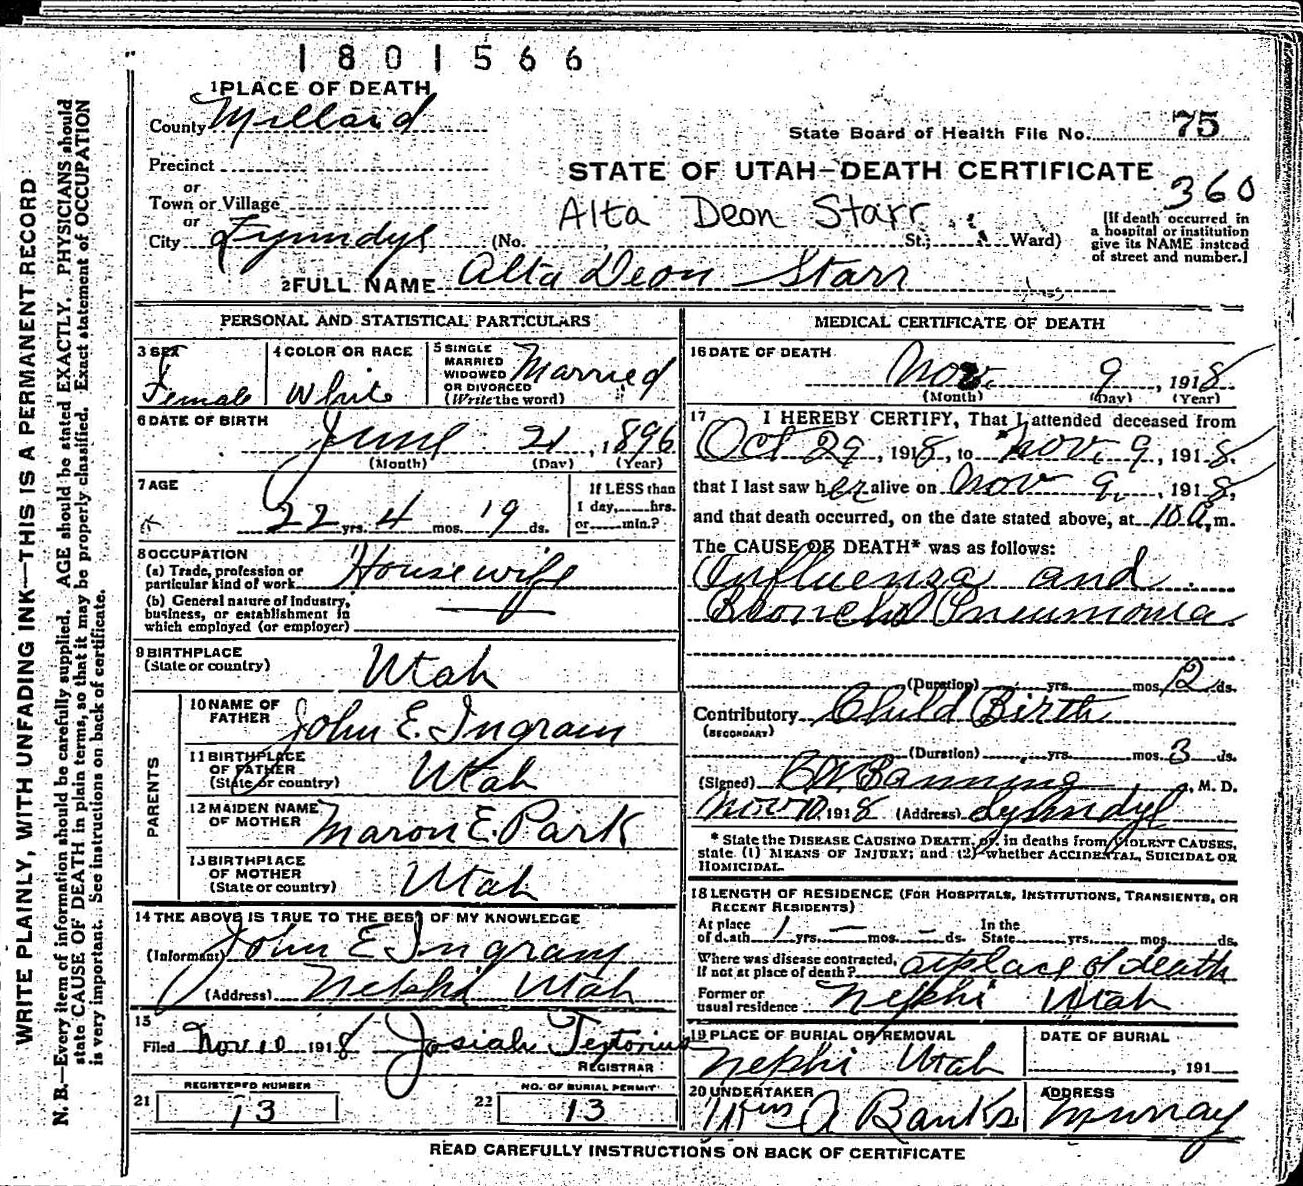 1801566
1 PLACE OF DEATH
County Millard
State Board of Health File No. 75
Precinct
STATE OF UTAH—DEATH CERTIFICATE
360
or
Town or Village
or
Alta Deon Starr
City Lynndyl (No. St.; Ward)
[If death occurred in
a hospital or institution
give its NAME instead
of street and number.]
2 FULL NAME Alta Deon Starr
PERSONAL AND STATISTICAL PARTICULARS
3 SEX
Female
4 COLOR OR RACE
White
5 SINGLE
MARRIED
WIDOWED
OR DIVORCED
(Write the word)
Married
6 DATE OF BIRTH
June 21, 1896
(Month) (Day) (Year)
7 AGE
22 yrs. 4 mos. 19 ds.
If LESS than
1 day, hrs.
or min.?
8 OCCUPATION
(a) Trade, profession or
particular kind of work Housewife
(b) General nature of industry,
business, or establishment in
which employed (or employer)
9 BIRTHPLACE
(State or country) Utah
PARENTS
10 NAME OF
FATHER John E. Ingram
11 BIRTHPLACE
OF FATHER
(State or country) Utah
12 MAIDEN NAME
OF MOTHER Maron E. Park
13 BIRTHPLACE
OF MOTHER
(State or country) Utah
14 THE ABOVE IS TRUE TO THE BEST OF MY KNOWLEDGE
(Informant) John E Ingram
(Address) Nephi Utah
15
Filed Nov 10 1918 Josiah Textorius
REGISTRAR
REGISTERED NUMBER
21 13
NO. OF BURIAL PERMIT
22 13
MEDICAL CERTIFICATE OF DEATH
16 DATE OF DEATH
Nov. 9, 1918
(Month) (Day) (Year)
17 I HEREBY CERTIFY, That I attended deceased from
Oct 29, 1918, to Nov. 9, 1918.
that I last saw her alive on Nov 9, 1918,
and that death occurred, on the date stated above, at 10 a.m.
The CAUSE OF DEATH* was as follows:
Influenza and
Broncho Pneumonia
(Duration) yrs. mos. 12 ds.
Contributory Child Birth
(SECONDARY)
(Duration) yrs. mos. 3 ds.
(Signed) Banning, M. D.
Nov 10, 1918 (Address) Lynndyl
*State the DISEASE CAUSING DEATH, or, in deaths from VIOLENT CAUSES,
state (1) MEANS OF INJURY; and (2) whether ACCIDENTAL, SUICIDAL OR
HOMICIDAL.
18 LENGTH OF RESIDENCE (FOR HOSPITALS, INSTITUTIONS, TRANSIENTS, OR
RECENT RESIDENTS)
At place
of death 1 yrs. — mos. — ds. In the
State yrs. mos. ds.
Where was disease contracted,
if not at place of death? at place of death
Former or
usual residence Nephi Utah
19 PLACE OF BURIAL OR REMOVAL
Nephi Utah
DATE OF BURIAL
, 191
20 UNDERTAKER
A Banks
ADDRESS
Murray
READ CAREFULLY INSTRUCTIONS ON BACK OF CERTIFICATE
WRITE PLAINLY, WITH UNFADING INK—THIS IS A PERMANENT RECORD
N. B.—Every item of information should be carefully supplied. AGE should be stated EXACTLY. PHYSICIANS should
state CAUSE OF DEATH in plain terms, so that it may be properly classified. Exact statement of OCCUPATION
is very important. See instructions on back of certificate.